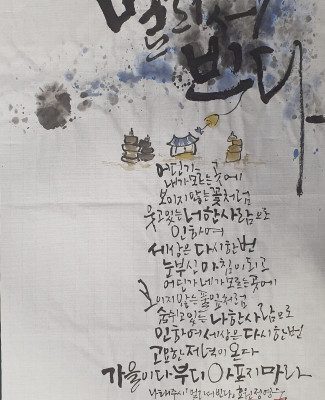 멀리서
빈다
어딘가 내가 모르는 곳에
보이지 않는 꽃처럼
웃고 있는 너 한 사람으로
인하여
세상은 다시 한 번
눈부신 아침이 되고
어딘가 네가 모르는 곳에
보이지 않는 풀잎처럼
숨쉬고 있는 나 한 사람으로
인하여 세상은 다시 한번
고요한 저녁이 온다
가을이다 부디 아프지 마라
나태주 시 멀리서 빈다